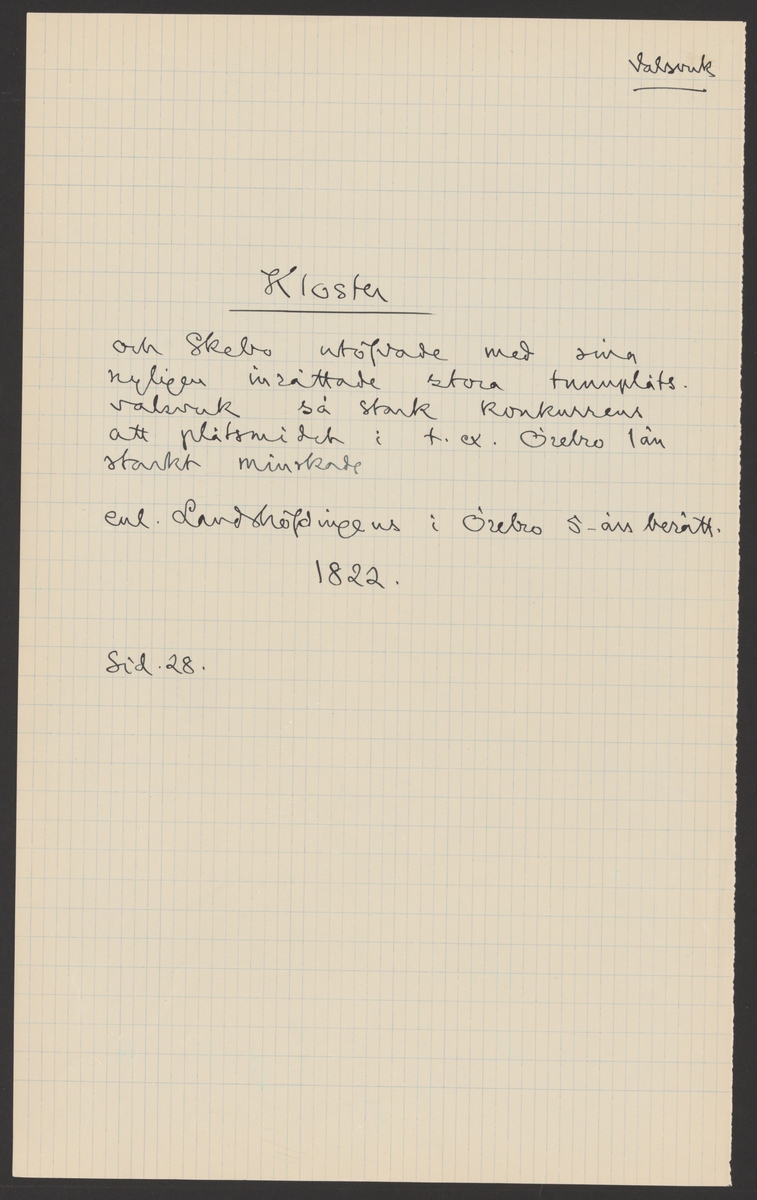 Valsverk
Kloster
och Skebo utöfvade med sina
nyligen inrättade stora tunnplåts-
valsverk så stark konkurrens
att plåtsmidet i t.ex. Örebro län
starkt minskade
enl. Landshöfdingens i Örebro 5-års berätt.
1822.
Sid. 28.